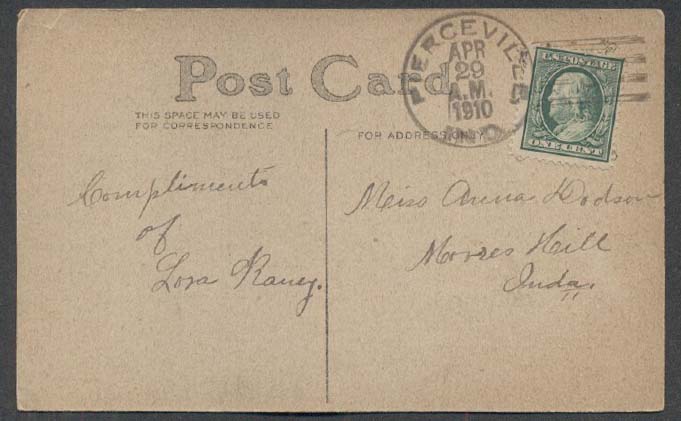 Post Card
THIS SPACE MAY BE USED
FOR CORRESPONDENCE
FOR ADDRESS ONLY
PIERCEVILLE
APR
29
A.M.
1910
IND.
U.S. POSTAGE
ONE CENT
Compliments
of
Lora Raney.
Miss Anna Dodson
Moores Hill
Inda.